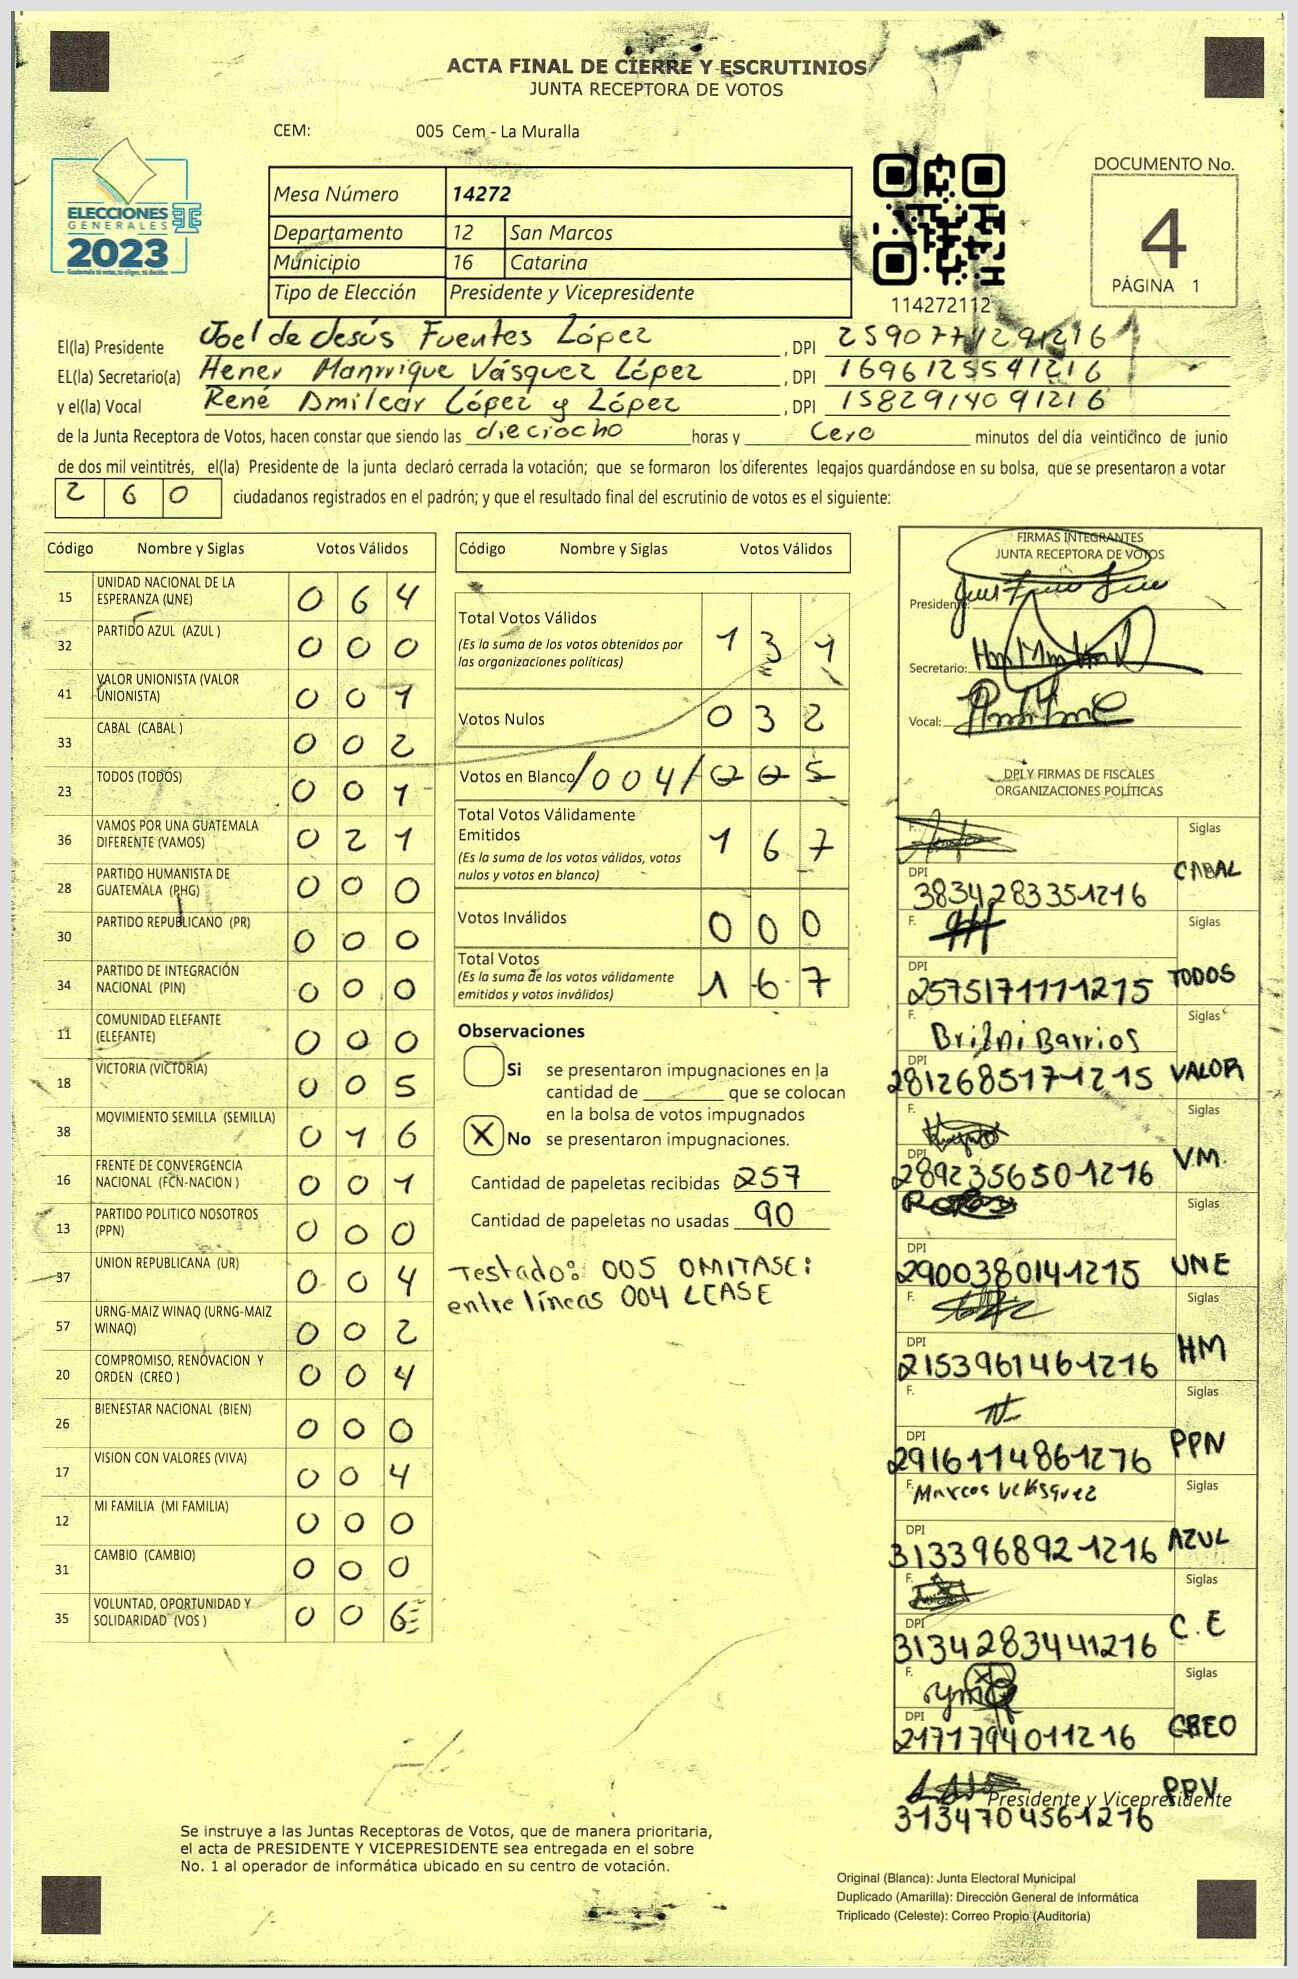 ACTA FINAL DE CIERRE Y ESCRUTINIOS
JUNTA RECEPTORA DE VOTOS
CEM: 005 Cem - La Muralla
ELECCIONES
GENERALES
2023
Guatemala tú votas, tú eliges, tú decides
Mesa Número 14272
Departamento 12 San Marcos
Municipio 16 Catarina
Tipo de Elección Presidente y Vicepresidente
114272112
DOCUMENTO No.
4
PÁGINA 1
El(la) Presidente Joel de Jesús Fuentes López, DPI 2590771291216
EL(la) Secretario(a) Hener Manrrique Vásquez López, DPI 1696125541216
y el(la) Vocal René Amilcar López y López, DPI 1582914091216
de la Junta Receptora de Votos, hacen constar que siendo las dieciocho horas y Cero minutos del día veinticinco de junio
de dos mil veintitrés, el(la) Presidente de la junta declaró cerrada la votación; que se formaron los diferentes legajos guardándose en su bolsa, que se presentaron a votar
2 6 0 ciudadanos registrados en el padrón; y que el resultado final del escrutinio de votos es el siguiente:
Código Nombre y Siglas Votos Válidos
15 UNIDAD NACIONAL DE LA ESPERANZA (UNE) 0 6 4
32 PARTIDO AZUL (AZUL ) 0 0 0
41 VALOR UNIONISTA (VALOR UNIONISTA) 0 0 1
33 CABAL (CABAL ) 0 0 2
23 TODOS (TODOS) 0 0 1
36 VAMOS POR UNA GUATEMALA DIFERENTE (VAMOS) 0 2 1
28 PARTIDO HUMANISTA DE GUATEMALA (PHG) 0 0 0
30 PARTIDO REPUBLICANO (PR) 0 0 0
34 PARTIDO DE INTEGRACIÓN NACIONAL (PIN) 0 0 0
11 COMUNIDAD ELEFANTE (ELEFANTE) 0 0 0
18 VICTORIA (VICTORIA) 0 0 5
38 MOVIMIENTO SEMILLA (SEMILLA) 0 1 6
16 FRENTE DE CONVERGENCIA NACIONAL (FCN-NACION ) 0 0 1
13 PARTIDO POLITICO NOSOTROS (PPN) 0 0 0
37 UNION REPUBLICANA (UR) 0 0 4
57 URNG-MAIZ WINAQ (URNG-MAIZ WINAQ) 0 0 2
20 COMPROMISO, RENOVACION Y ORDEN (CREO ) 0 0 4
26 BIENESTAR NACIONAL (BIEN) 0 0 0
17 VISION CON VALORES (VIVA) 0 0 4
12 MI FAMILIA (MI FAMILIA) 0 0 0
31 CAMBIO (CAMBIO) 0 0 0
35 VOLUNTAD, OPORTUNIDAD Y SOLIDARIDAD (VOS ) 0 0 6
Código Nombre y Siglas Votos Válidos
Total Votos Válidos 1 3 1
(Es la suma de los votos obtenidos por
las organizaciones políticas)
Votos Nulos 0 3 2
Votos en Blanco /004/ 0 0 5
Total Votos Válidamente
Emitidos 1 6 7
(Es la suma de los votos válidos, votos
nulos y votos en blanco)
Votos Inválidos 0 0 0
Total Votos 1 6 7
(Es la suma de los votos válidamente
emitidos y votos inválidos)
Observaciones
Si se presentaron impugnaciones en la
cantidad de ________ que se colocan
en la bolsa de votos impugnados
X No se presentaron impugnaciones.
Cantidad de papeletas recibidas 257
Cantidad de papeletas no usadas 90
Testado: 005 OMITASE:
entre líneas 004 LEASE
FIRMAS INTEGRANTES
JUNTA RECEPTORA DE VOTOS
Presidente:
Secretario:
Vocal:
DPI Y FIRMAS DE FISCALES
ORGANIZACIONES POLÍTICAS
F. Siglas
DPI 3834283351216 CABAL
F. Siglas
DPI 2575171111215 TODOS
F. Brilni Barrios Siglas
DPI 2812685171215 VALOR
F. Siglas
DPI 2892356501216 V.M.
Siglas
DPI 2900380141215 UNE
F. Siglas
DPI 2153961461216 HM
F. Siglas
DPI 2916114861276 PPN
F. Marcos Velásquez Siglas
DPI 3133968921216 AZUL
F. Siglas
DPI 3134283441216 C.E
F. Siglas
DPI 2171794011216 CREO
PPV
Presidente y Vicepresidente
3134704561216
Se instruye a las Juntas Receptoras de Votos, que de manera prioritaria,
el acta de PRESIDENTE Y VICEPRESIDENTE sea entregada en el sobre
No. 1 al operador de informática ubicado en su centro de votación.
Original (Blanca): Junta Electoral Municipal
Duplicado (Amarilla): Dirección General de Informática
Triplicado (Celeste): Correo Propio (Auditoría)